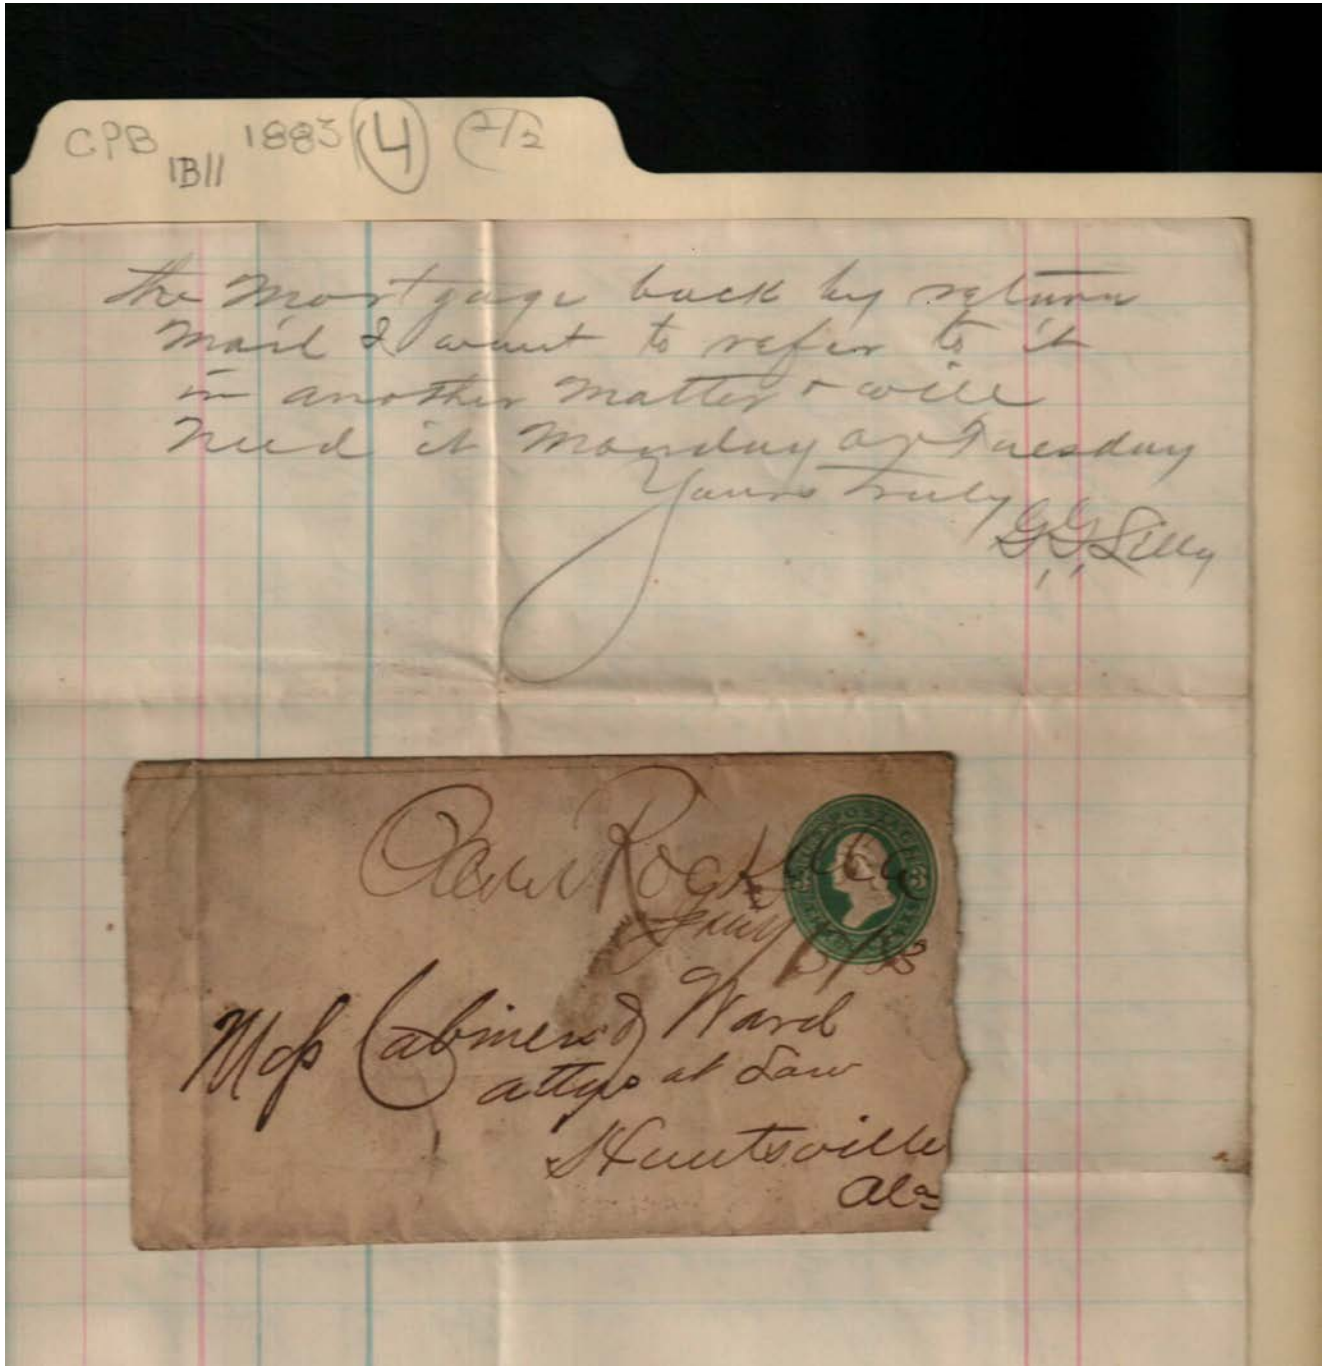 CPB 1B11 1883 (4) (2/2)
the Mortgage back by return
Mail I want to refer to it
in another Matter & will
Need it Monday or Tuesday
Yours Truly
G. G. Lilly
July 5/83
Mess Cabiness & Ward
attys at Law
Huntsville
Ala